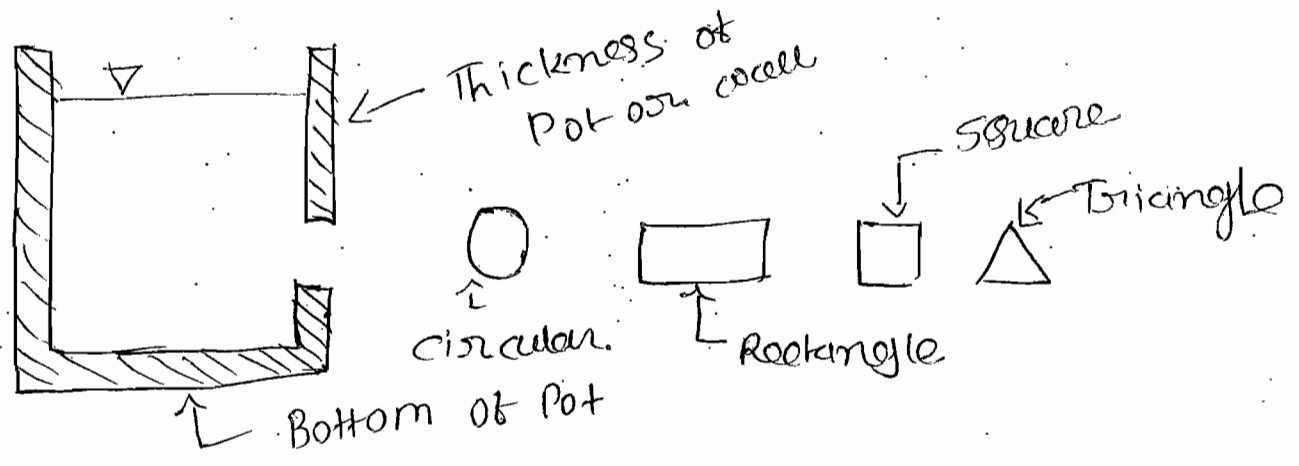 Thickness of
Pot or wall
Square
Triangle
Circular.
Rectangle
Bottom of Pot